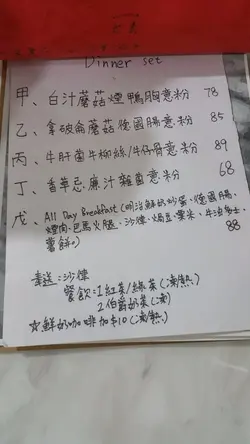 Dinner set
甲、白汁蘑菇煙鴨胸意粉 78
乙、拿破侖蘑菇德國腸意粉 85
丙、牛肝菌牛柳絲/牛仔骨意粉 89
丁、香草忌廉汁雜菌意粉 68
戊、All Day Breakfast (明治鮮奶炒蛋、德國腸、
煙肉、巴馬火腿、沙律、焗豆、粟米、牛油多士、
薯餅。) 88
奉送:沙律
餐飲:1紅茶/綠茶(凍熱)
2伯爵奶茶(凍)
☆鮮奶咖啡加$10(凍熱)